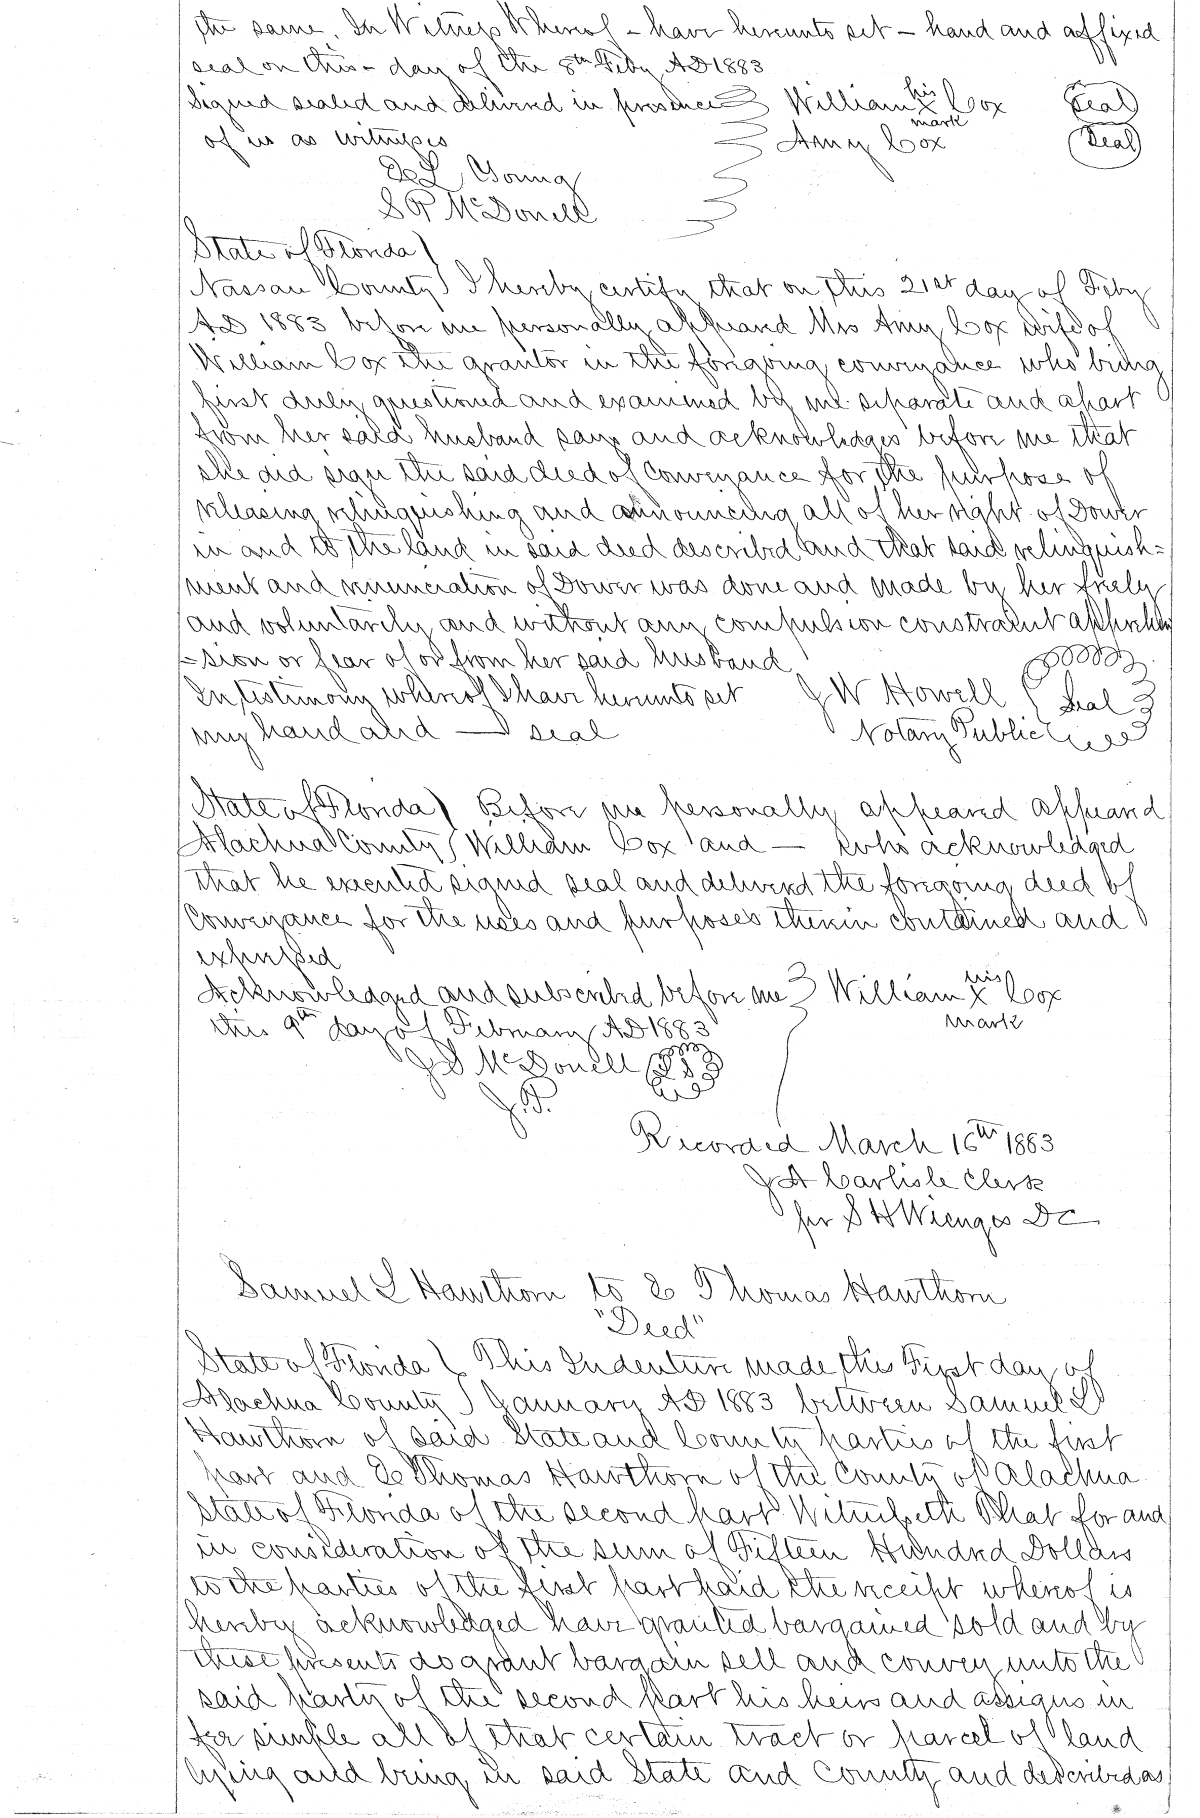 the same. In Witness Whereof - have hereunto set - hand and affixed
seal on this - day of the 8th Feby AD 1883
Signed sealed and delivered in presence William his X mark Cox Seal
of us as witnesses Amy Cox Seal
L Young
S P McDonell
State of Florida
Nassau County I hereby certify that on this 21st day of Feby
AD 1883 before me personally appeared Mrs Amy Cox wife of
William Cox the grantor in the foregoing conveyance who being
first duly questioned and examined by me separate and apart
from her said husband says and acknowledges before me that
she did sign the said deed of Conveyance for the purpose of
releasing relinquishing and announcing all of her right of Dower
in and to the land in said deed described and that said relinquish=
ment and renunciation of Dower was done and made by her freely
and voluntarily and without any compulsion constraint apprehen
=sion or fear of or from her said husband
In testimony whereof I have hereunto set J W Howell Seal
my hand and — seal Notary Public
State of Florida Before me personally appeared appeared
Alachua County William Cox and — who acknowledged
that he executed signed seal and delivered the foregoing deed of
Conveyance for the uses and purposes therein contained and
expressed
Acknowledged and subscribed before me William his X mark Cox
this 9th day of February AD 1883
J S McDonell L S
J.P.
Recorded March 16th 1883
J A Carlisle Clerk
per S H Wienges DC
Samuel L Hawthorn to E Thomas Hawthorn
"Deed"
State of Florida This Indenture made this First day of
Alachua County January AD 1883 between Samuel L
Hawthorn of said State and County parties of the first
part and E Thomas Hawthorn of the County of Alachua
State of Florida of the second part Witnesseth That for and
in consideration of the sum of Fifteen Hundred Dollars
to the parties of the first part paid the receipt whereof is
hereby acknowledged have granted bargained sold and by
these presents do grant bargain sell and convey unto the
said party of the second part his heirs and assigns in
fee simple all of that certain tract or parcel of land
lying and being in said State and County and described as